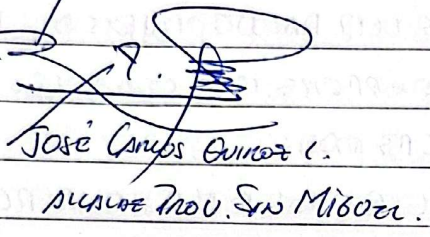 JOSÉ CARLOS QUIROZ C.
ALCALDE PROV. SAN MIGUEL.